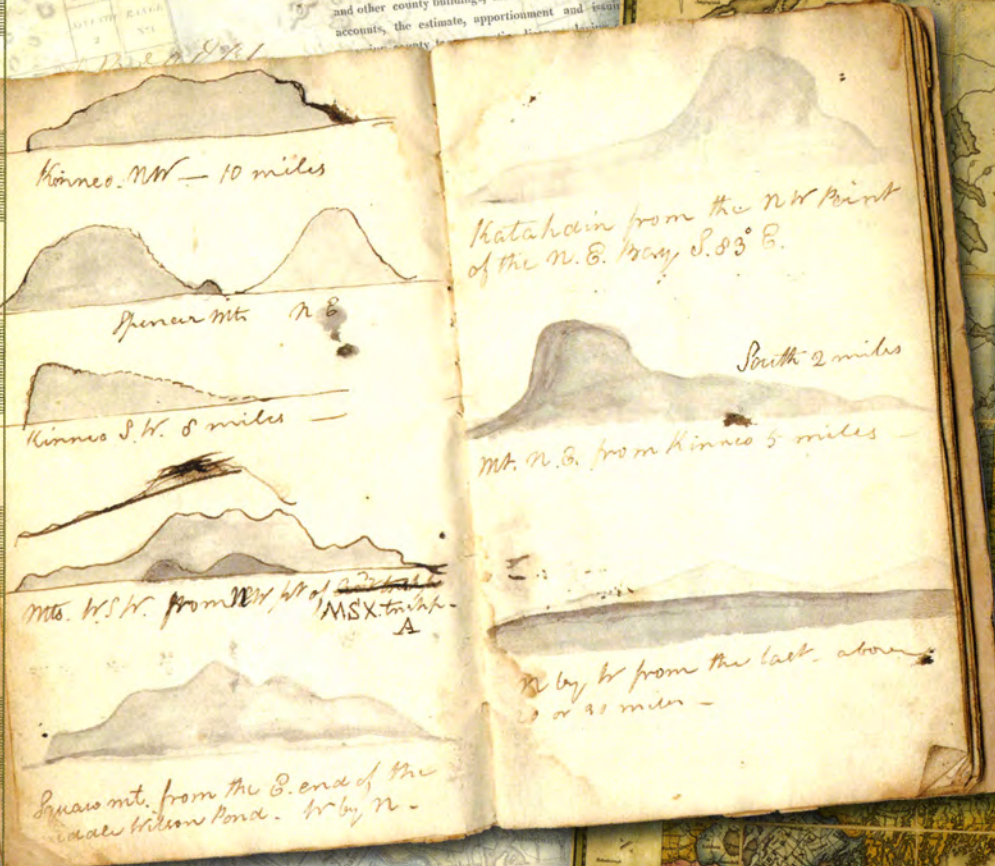 and other county buildings,
accounts, the estimate, apportionment and issuin
RANGE
No 1
2
Kinneo. NW — 10 miles
Spencer Mts N E
Kinneo S. W. 8 miles —
Mts. W.S.W. from NW pt of
MSX.
A
Squaw mt. from the E. end of the
iddle Wilson Pond. W by N -
Katahdin from the NW Point
of the N. E. Bay S. 83° E.
South 2 miles
Mt. N. E. from Kinneo 5 miles —
N by W from the last. above
or miles —